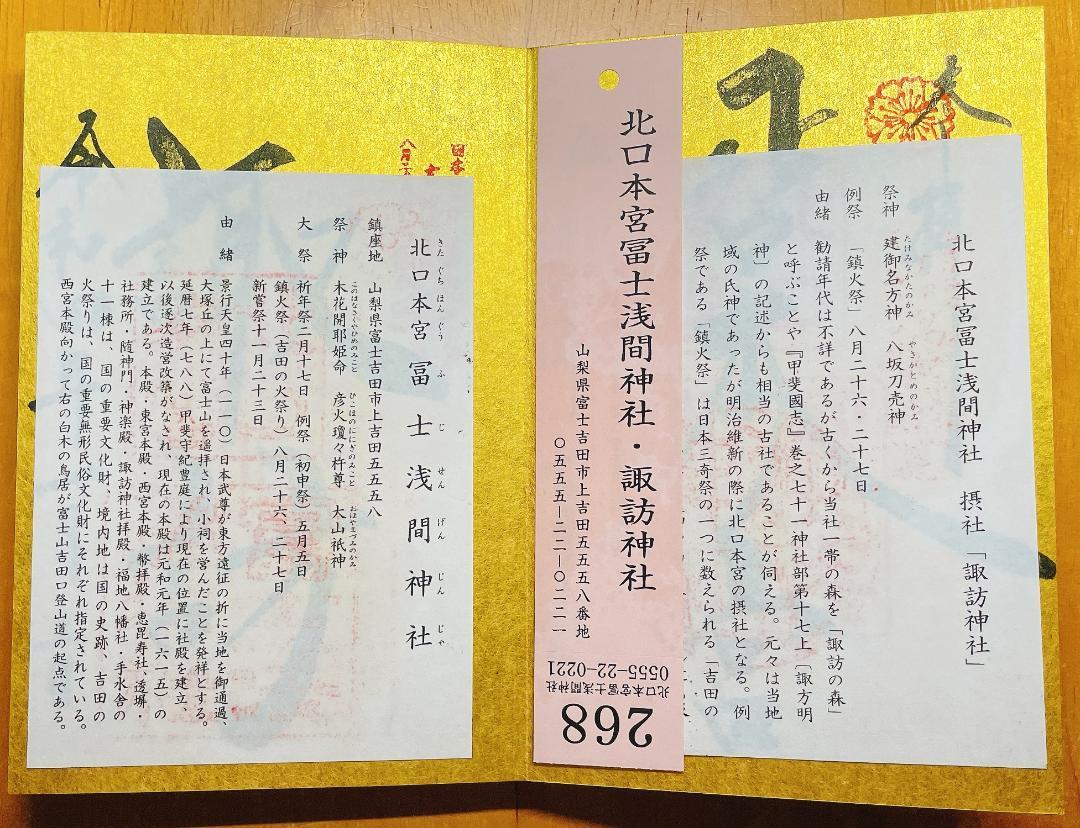 奉
北口本宮冨士浅間神社　摂社「諏訪神社」
祭神　建御名方神　八坂刀売神
たけみなかたのかみ　やさかとめのかみ
例祭　「鎮火祭」八月二十六・二十七日
由緒　勧請年代は不詳であるが古くから当社一帯の森を「諏訪の森」
と呼ぶことや『甲斐國志』巻之七十一神社部第十七上〔諏方明
神〕の記述からも相当の古社であることが伺える。元々は当地
域の氏神であったが明治維新の際に北口本宮の摂社となる。例
祭である「鎮火祭」は日本三奇祭の一つに数えられる「吉田の
北口本宮冨士浅間神社・諏訪神社
山梨県富士吉田市上吉田五五五八番地
〇五五五－二二－〇二二一
268
北口本宮冨士浅間神社
0555−22−0221
北口本宮冨士浅間神社
きたぐちほんぐうふじせんげんじんじゃ
鎮座地　山梨県富士吉田市上吉田五五五八
祭神　木花開耶姫命　彦火瓊々杵尊　大山祇神
このはなさくやひめのみこと　ひこほのににぎのみこと　おほやまづみのかみ
大祭　祈年祭二月十七日　例祭（初申祭）五月五日
鎮火祭（吉田の火祭り）八月二十六、二十七日
新嘗祭十一月二十三日
由緒　景行天皇四十年（一一〇）日本武尊が東方遠征の折に当地を御通過、
大塚丘の上にて富士山を遥拝され、小祠を営んだことを発祥とする。
延暦七年（七八八）甲斐守紀豊庭により現在の位置に社殿を建立、
以後逐次造営改築がなされ、現在の本殿は元和元年（一六一五）の
建立である。本殿・東宮本殿・西宮本殿・幣拝殿・恵毘寿社、透塀・
社務所・随神門・神楽殿・諏訪神社拝殿・福地八幡社・手水舎の
十一棟は、国の重要文化財、境内地は国の史跡、吉田の
火祭りは、国の重要無形民俗文化財にそれぞれ指定されている。
西宮本殿向かって右の白木の鳥居が富士山吉田口登山道の起点である。